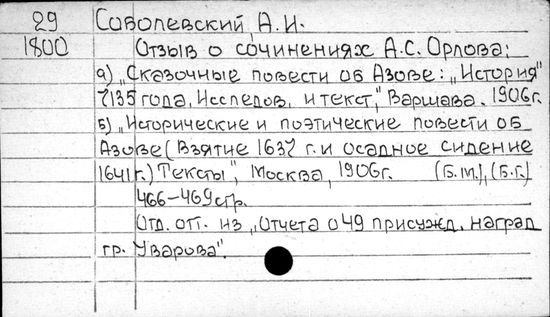 29 Соболевский, А.И.
1800 Отзыв о сочинениях А.С. Орлова:
а) „Сказочные повести об Азове: „История"
7135 года, Исслед­ов. и текст", Варшава. 1906 г.
б) „Исторические и поэтические повести об
Азове (взятие 1637 г. и осадное сидение
1641 г.) Тексты", Москва, 1906 г. (Б.М.), (Б.Г.)
466-469 стр.
Отд. отт. из „Отчета о 49 присужд. наград
гр. Уварова".